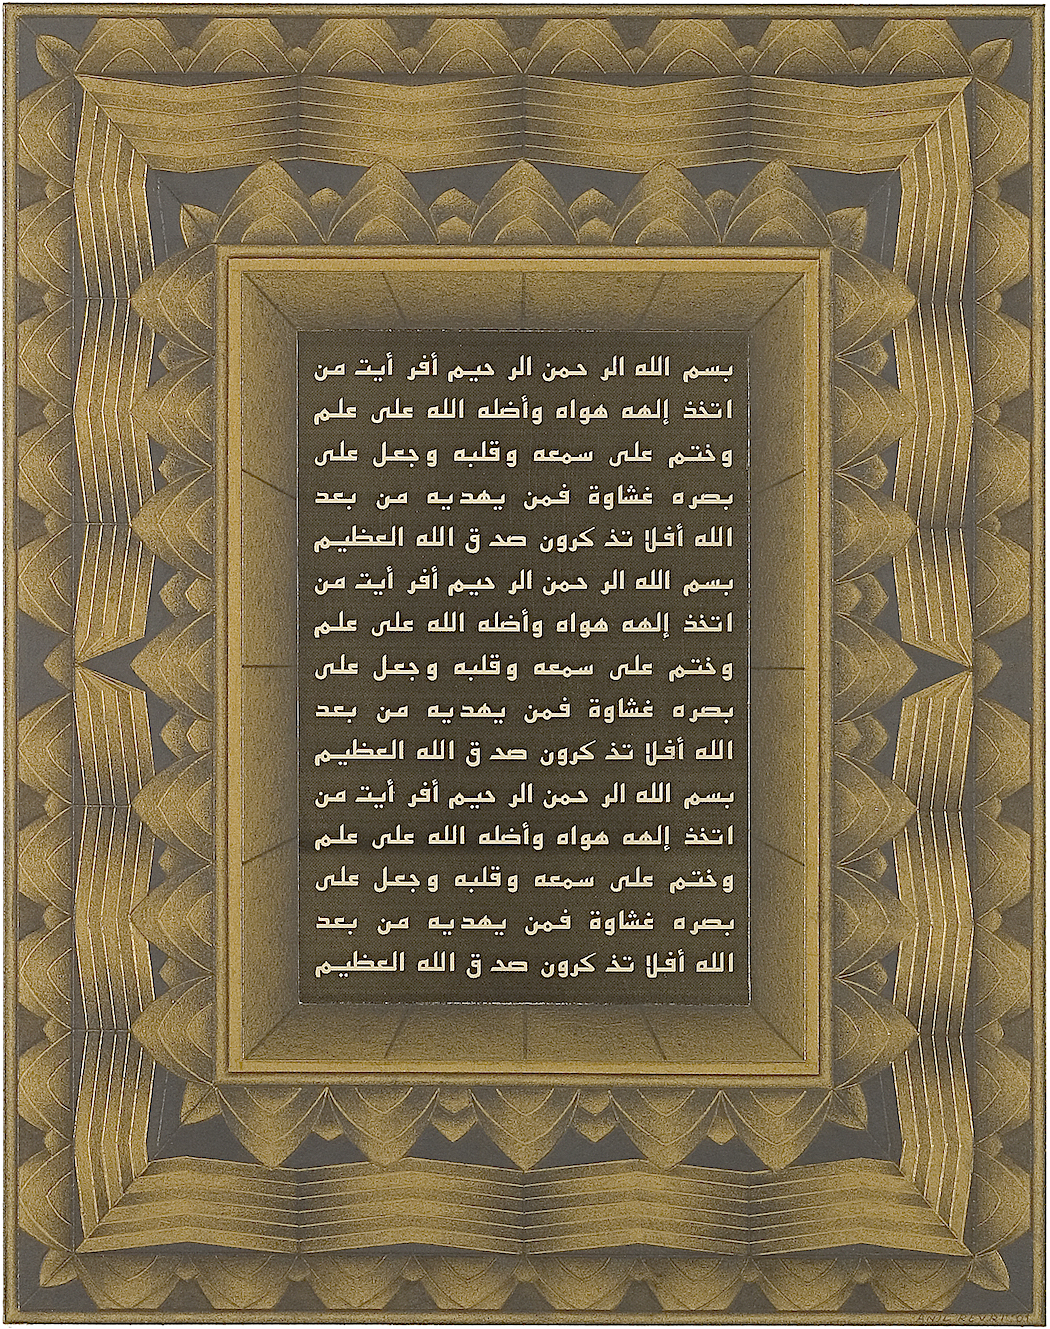 بسم الله الر حمن الر حيم أفر أيت من
اتخذ إلهه هواه وأضله الله على علم
وختم على سمعه وقلبه وجعل على
بصره غشاوة فمن يهديه من بعد
الله أفلا تذ كرون صد ق الله العظيم
بسم الله الر حمن الر حيم أفر أيت من
اتخذ إلهه هواه وأضله الله على علم
وختم على سمعه وقلبه وجعل على
بصره غشاوة فمن يهديه من بعد
الله أفلا تذ كرون صد ق الله العظيم
بسم الله الر حمن الر حيم أفر أيت من
اتخذ إلهه هواه وأضله الله على علم
وختم على سمعه وقلبه وجعل على
بصره غشاوة فمن يهديه من بعد
الله أفلا تذ كرون صد ق الله العظيم
ANIL REVRI